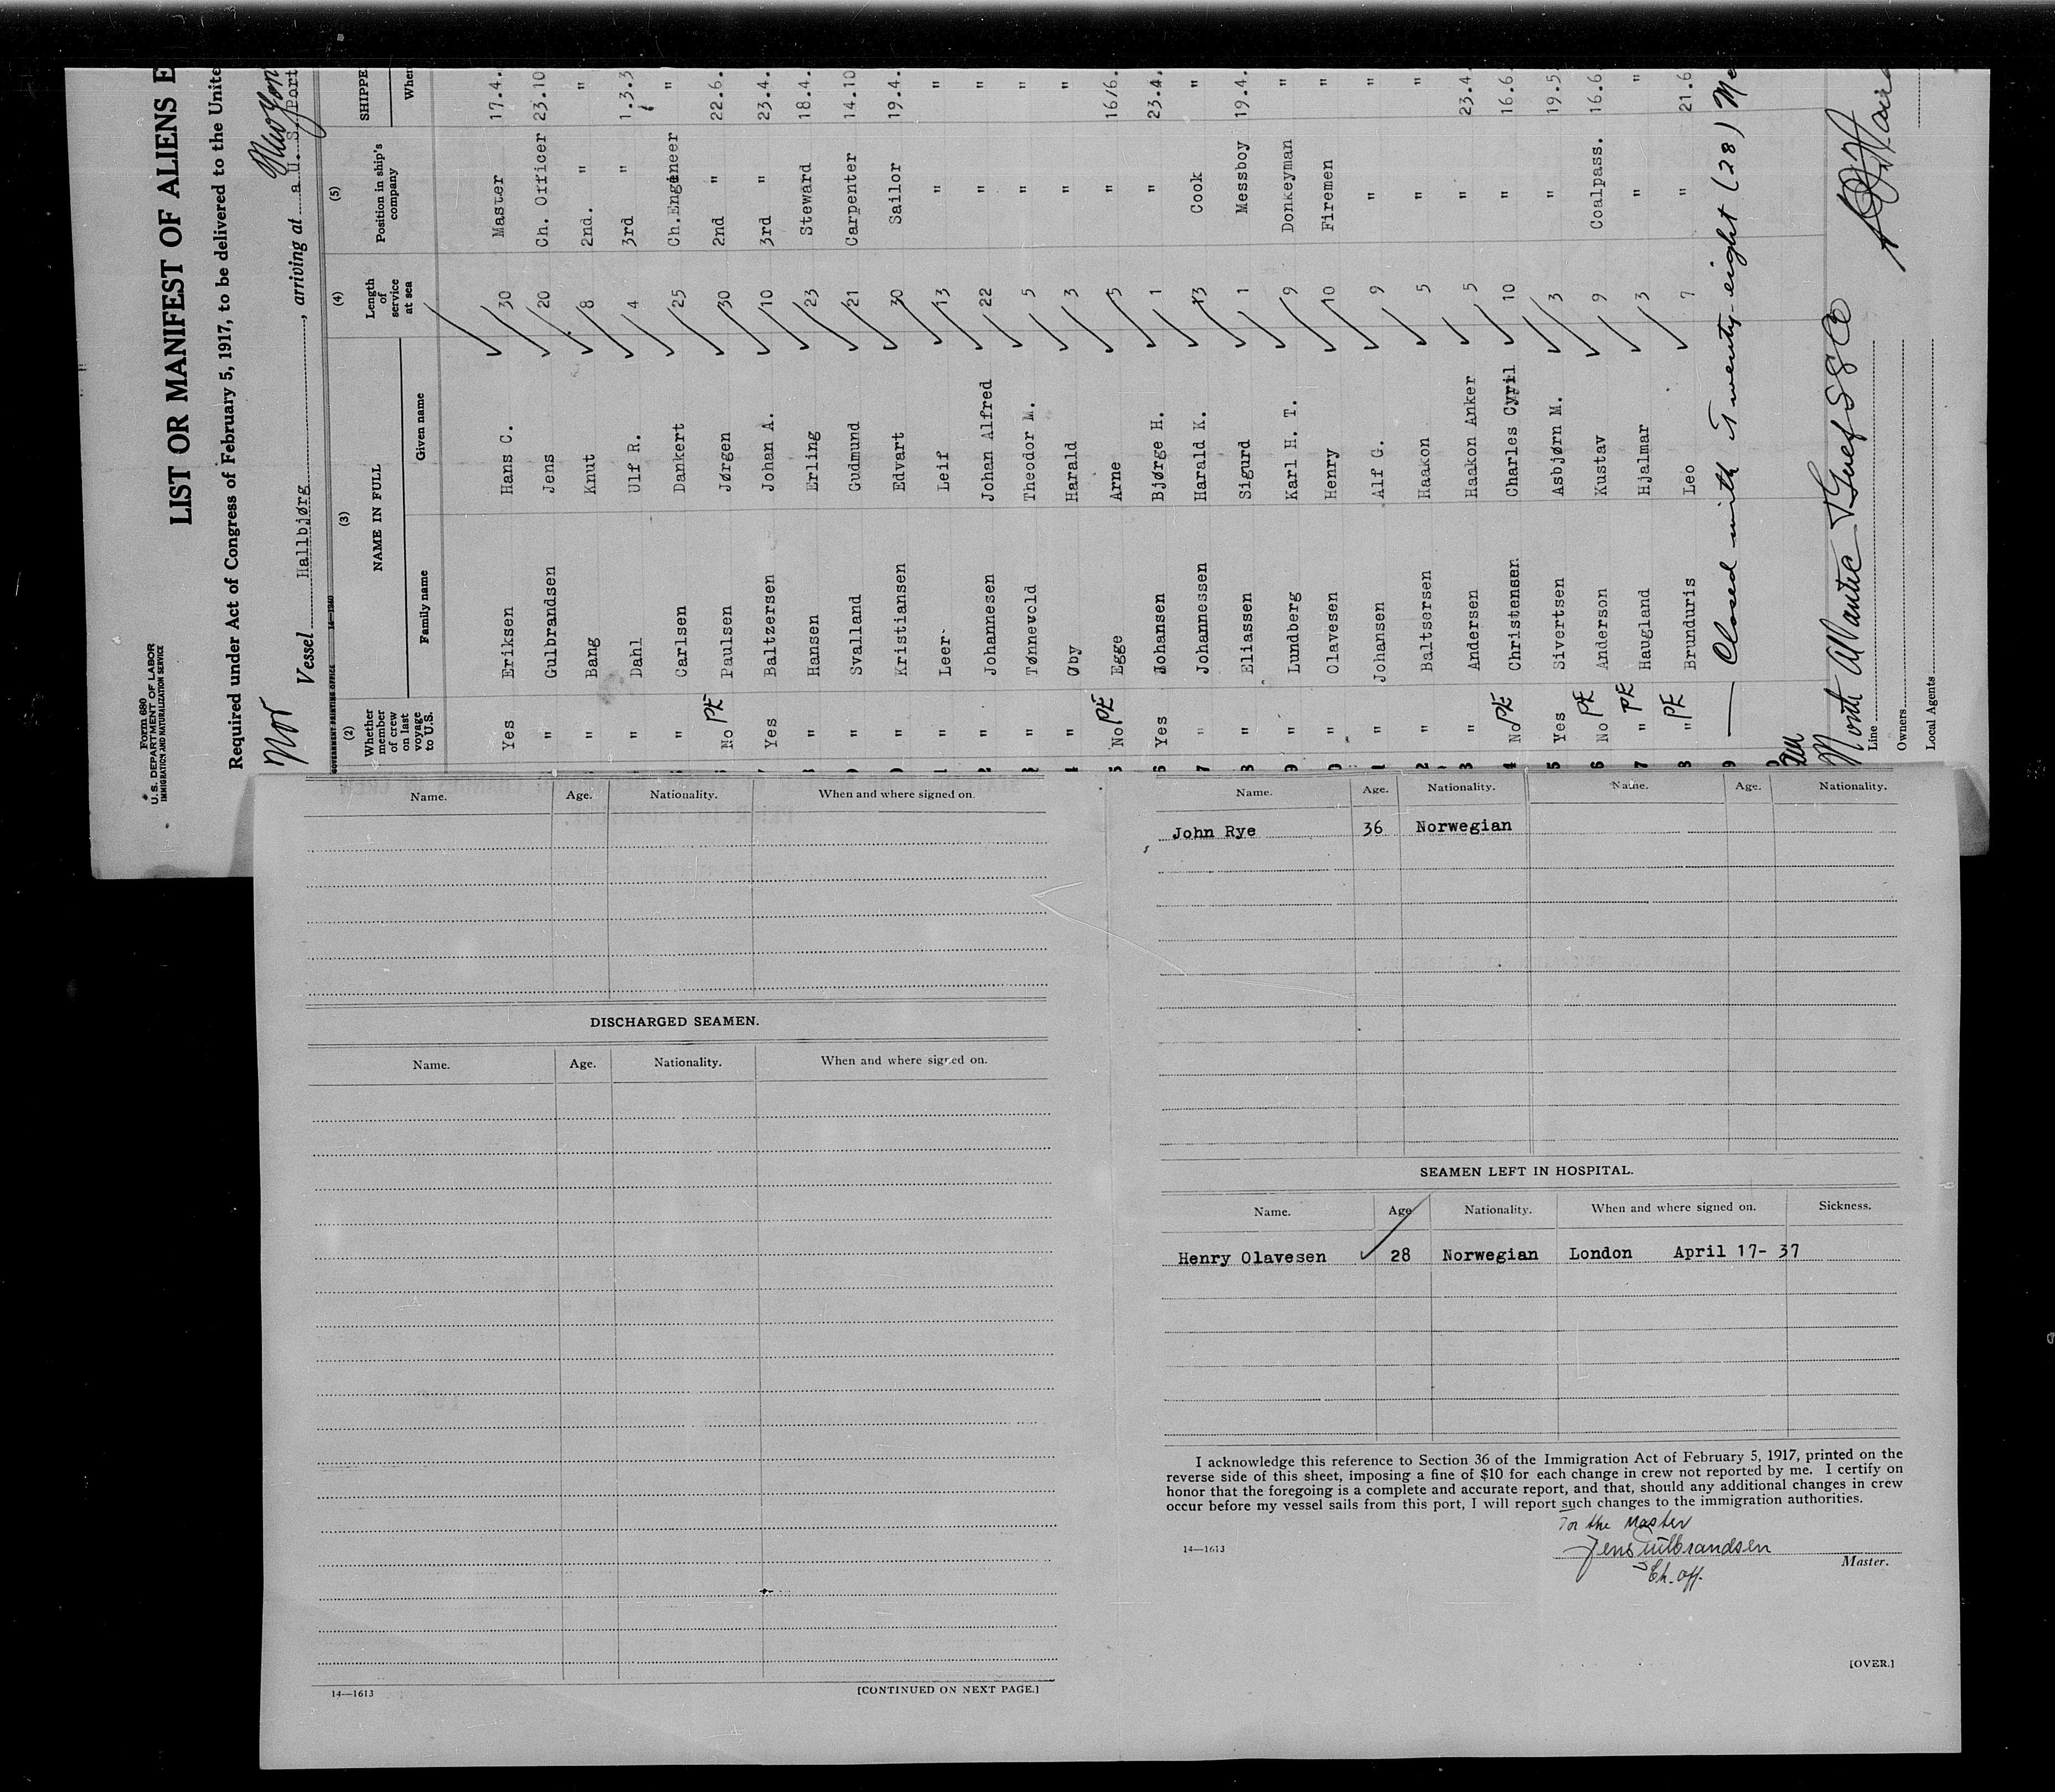 Form 680
U. S. DEPARTMENT OF LABOR
IMMIGRATION AND NATURALIZATION SERVICE
LIST OR MANIFEST OF ALIENS E
Required under Act of Congress of February 5, 1917, to be delivered to the Unite
Nor
Vessel Hallbjørg , arriving at a U. S. Port
New York
GOVERNMENT PRINTING OFFICE
(2) (3) (4) (5)
Whether member of crew on last voyage to U.S. NAME IN FULL Length of service at sea Position in ship's company SHIPPE
Family name Given name When
Yes Eriksen Hans C. 30 Master 17.4.
" Gulbrandsen Jens 20 Ch. Officer 23.10
" Bang Knut 8 2nd. " "
" Dahl Ulf R. 4 3rd " 1.3.3
" Carlsen Dankert 25 Ch.Engeneer "
No PE Paulsen Jørgen 30 2nd " 22.6.
Yes Baltzersen Johan A. 10 3rd " 23.4.
" Hansen Erling 23 Steward 18.4.
" Svalland Gudmund 21 Carpenter 14.10
" Kristiansen Edvart 30 Sailor 19.4.
" Leer Leif 13 " "
" Johannesen Johan Alfred 22 " "
" Tønnevold Theodor M. 5 " "
" Øby Harald 3 " "
No PE Egge Arne 5 " 16/6.
Yes Johansen Bjørge H. 1 " 23.4.
" Johannessen Harald K. 13 Cook "
" Eliassen Sigurd 1 Messboy 19.4.
" Lundberg Karl H. T. 9 Donkeyman "
" Olavesen Henry 10 Firemen "
" Johansen Alf G. 9 " "
" Baltsersen Haakon 5 " "
" Andersen Haakon Anker 5 " 23.4
No PE Christensen Charles Cyril 10 " 16.6
Yes Sivertsen Asbjørn M. 3 " 19.5
No PE Anderson Kustav 9 Coalpass. 16.6
" PE Haugland Hjalmar 3 " "
" PE Brunduris Leo 7 " 21.6
Closed with Twenty-eight (28) Me
Line North Atlantic & Gulf SS Co
Owners
Local Agents
Name. Age. Nationality. When and where signed on.
DISCHARGED SEAMEN.
Name. Age. Nationality. When and where signed on.
14—1613 [CONTINUED ON NEXT PAGE.]
Name. Age. Nationality. Name. Age. Nationality.
John Rye 36 Norwegian
SEAMEN LEFT IN HOSPITAL.
Name. Age Nationality. When and where signed on. Sickness.
Henry Olavesen 28 Norwegian London April 17- 37
I acknowledge this reference to Section 36 of the Immigration Act of February 5, 1917, printed on the
reverse side of this sheet, imposing a fine of $10 for each change in crew not reported by me. I certify on
honor that the foregoing is a complete and accurate report, and that, should any additional changes in crew
occur before my vessel sails from this port, I will report such changes to the immigration authorities.
For the Master
Jens Gulbrandsen
14—1613 Master.
Ch. off.
[OVER.]